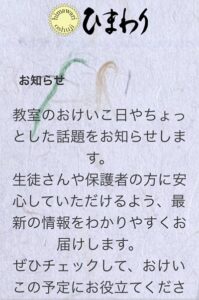 himawari
oshuji
ひまわり
お知らせ
教室のおけいこ日やちょっ
とした話題をお知らせしま
す。
生徒さんや保護者の方に安
心していただけるよう、最
新の情報をわかりやすくお
届けします。
ぜひチェックして、おけい
この予定にお役立てくださ